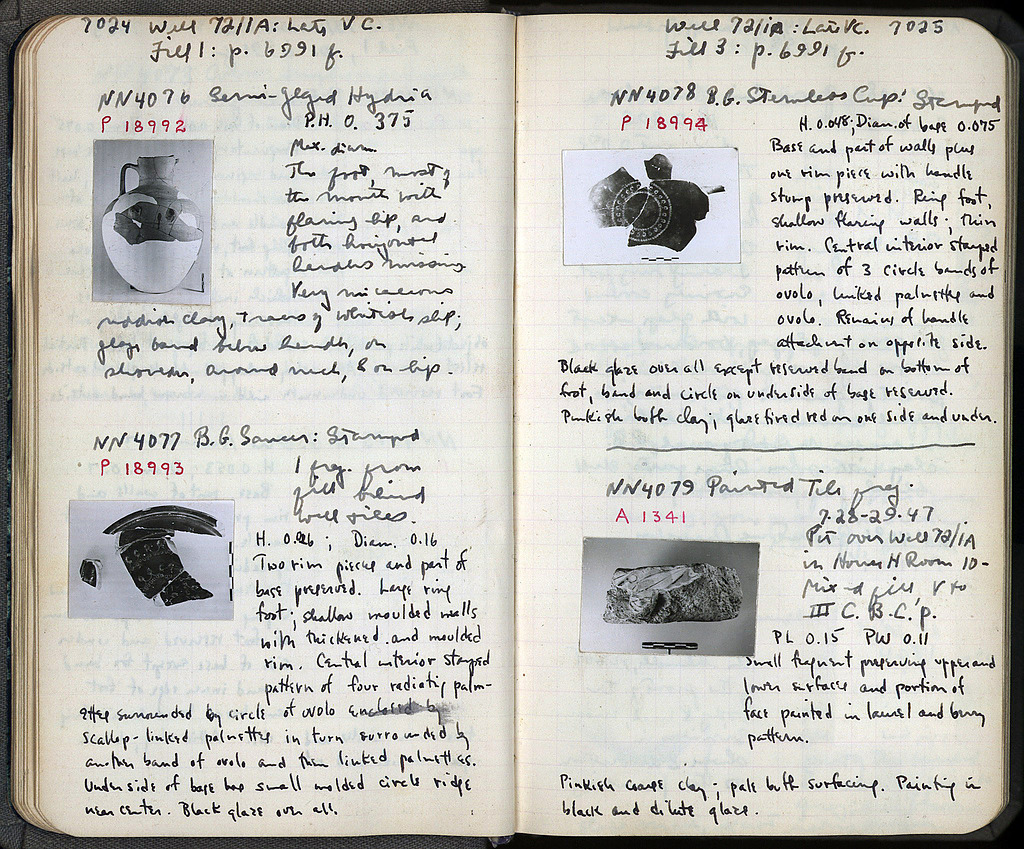 7024 Well 72/1A: Late V C.
Fill 1: p. 6991 f.
NN4076 Semi-glazed Hydria
P 18992 P.H. 0. 375
Max. diam
The foot, most of
the mouth with
flaring lip, and
both horizontal
handles missing
Very micaceous
reddish clay, traces of whitish slip;
glaze band below handles, on
shoulder, around neck, & on lip.
NN4077 B.G. Saucer: Stamped
P 18993 1 frag. from
fill behind
well tiles.
H. 0.026 ; Diam. 0.16
Two rim pieces and part of
base preserved. Large ring
foot; shallow moulded walls
with thickened and moulded
rim. Central interior stamped
pattern of four radiating palm-
ettes surrounded by circle of ovolo enclosed by
scallop-linked palmettes in turn surrounded by
another band of ovolo and then linked palmettes.
Underside of base has small molded circle ridge
near center. Black glaze over all.
Well 72/1A: Late VC. 7025
Fill 3: p. 6991 f.
NN4078 B.G. Stemless Cup: Stamped
P 18994 H. 0.048; Diam. of base 0.075
Base and part of walls plus
one rim piece with handle
stump preserved. Ring foot,
shallow flaring walls; thin
rim. Central interior stamped
pattern of 3 circle bands of
ovolo, linked palmettes and
ovolo. Remains of handle
attachment on opposite side.
Black glaze over all except reserved band on bottom of
foot, band and circle on underside of base reserved.
Pinkish buff clay; glaze fired red on one side and under.
NN4079 Painted Tile frag.
A 1341 7-28-29-47
Pit over Well 72/1A
in House H Room 10-
Mixed fill, V to
III C. B.C. p.
PL 0.15 PW 0.11
Small fragment preserving upper and
lower surfaces and portion of
face painted in laurel and berry
pattern.
Pinkish coarse clay; pale buff surfacing. Painting in
black and dilute glaze.